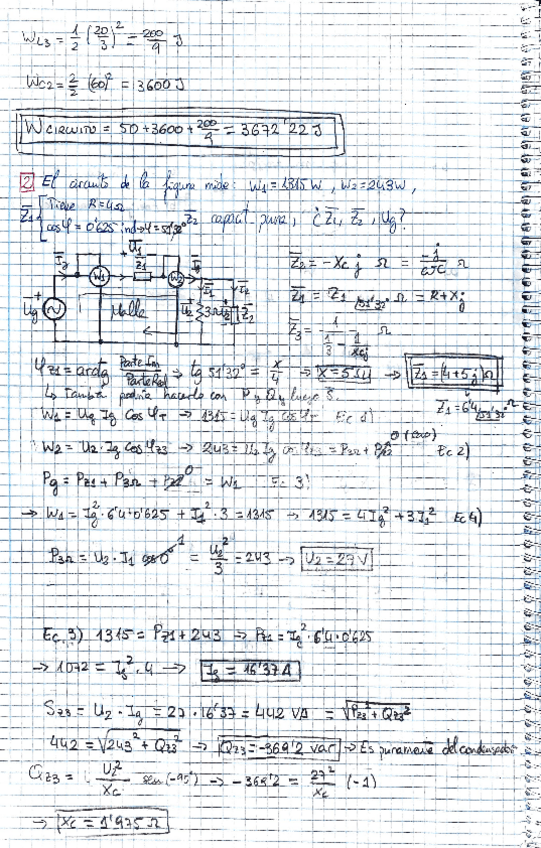 W_L3 = 1/2 (20/3)² = 200/9 J
W_C2 = 2/2 (60)² = 3600 J
W CIRCUITO = 50 + 3600 + 200/9 = 3672'22 J
2 El circuito de la figura mide: W1 = 1315 W, W2 = 243 W,
Z̄1 { Tiene R = 4Ω
cos φ = 0'625 ind → φ = 51'32° Z̄2 capact pura, ¿Z̄1, Z̄2, Ūg?
Īg W1 + Ū1 Z̄1 W2 Īg Ī1 Ī2
Ūg + Malla U2 3Ω Z̄2
Z̄2 = -Xc j Ω = -j/ωC Ω
Z̄1 = Z1 51'32° Ω = R + Xj
Z̄3 = 1 / (1/3 - 1/Xcj) Ω
φZ1 = arctg Parte Im/Parte Real → tg 51'32° = X/4 → X = 5Ω → Z̄1 = (4+5j)Ω
↳ También podría hacerlo con P y Q y luego S. Z̄1 = 6'4 51'32° Ω
W1 = Ug Ig cos φT → 1315 = Ug Ig cos φT Ec 1)
W2 = U2 · Ig cos φZ3 → 243 = U2 Ig cos φZ3 = P3Ω + PZ2 Ec 2)
Pg = PZ1 + P3Ω + PZ2 0 = W1 Ec 3)
→ W1 = Ig² · 6'4 · 0'625 + I1² · 3 = 1315 → 1315 = 4Ig² + 3I1² Ec 4)
P3Ω = U2 · I1 cos 0° 1 = U2²/3 = 243 → U2 = 27 V
Ec. 3) 1315 = PZ1 + 243 → PZ1 = Ig² · 6'4 · 0'625
→ 1072 = Ig² · 4 → Ig = 16'37 A
SZ3 = U2 · Ig = 27 · 16'37 = 442 VA = √(PZ3² + QZ3²)
442 = √(243² + QZ3²) → QZ3 = -369'2 var → Es puramente del condensador
QZ3 = U2²/Xc sen(-90°) → -369'2 = 27²/Xc (-1)
→ Xc = 1'975 Ω